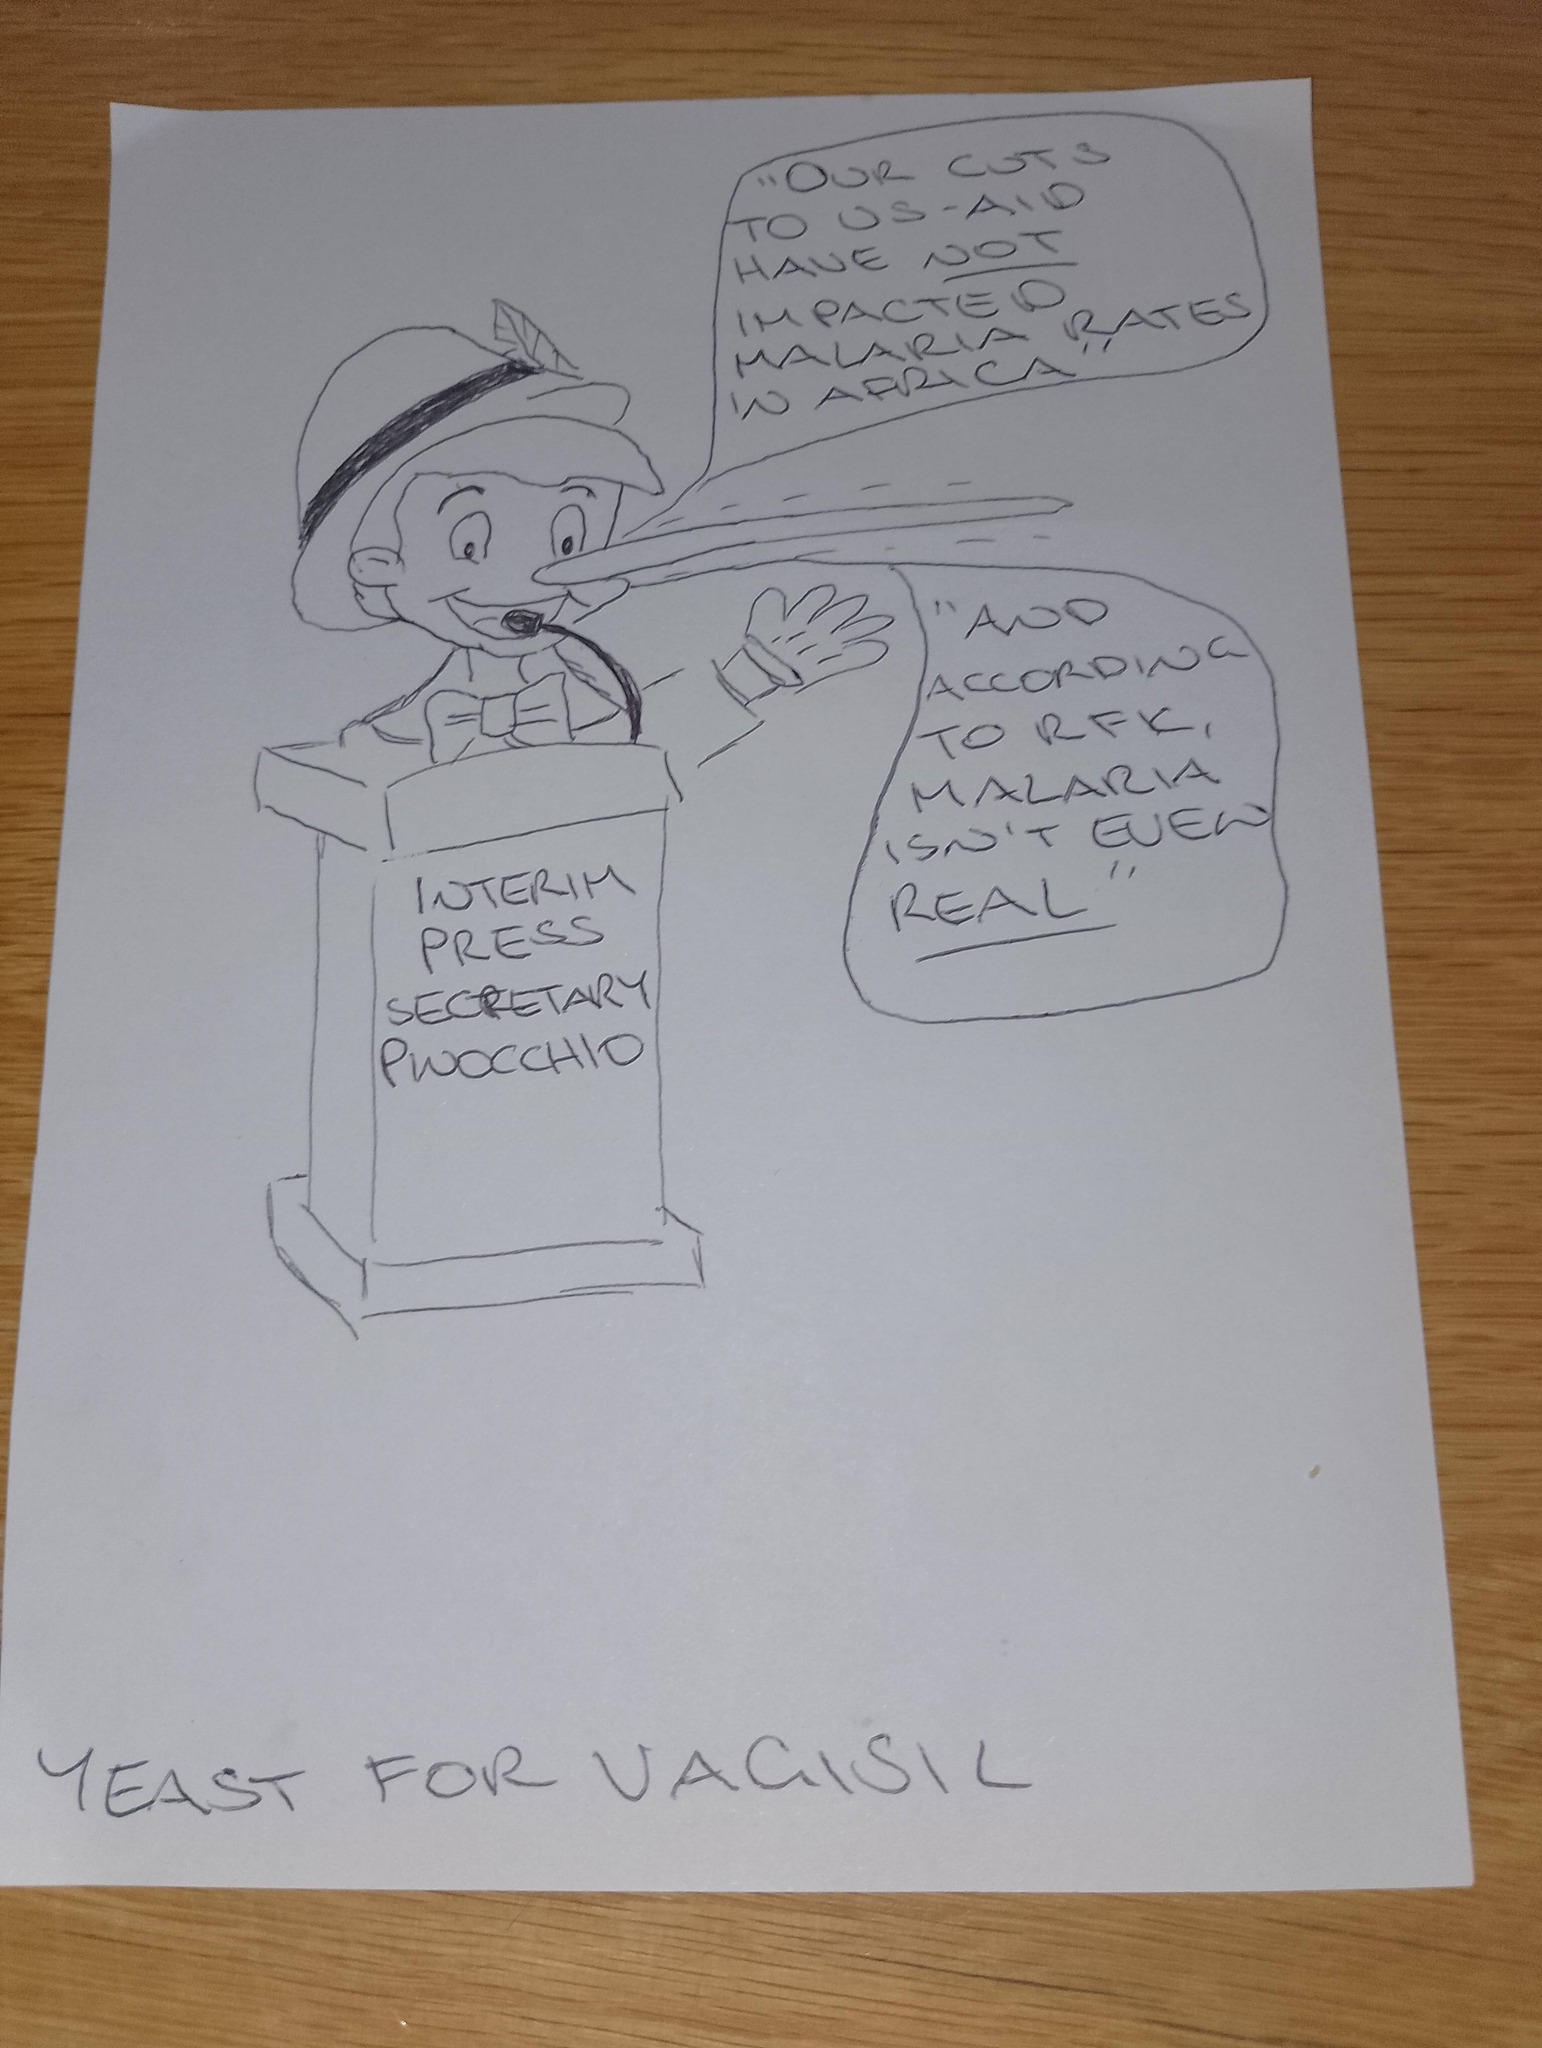 "OUR CUTS
TO US-AID
HAVE NOT
IMPACTED
MALARIA RATES
IN AFRICA"
"AND
ACCORDING
TO RFK,
MALARIA
ISN'T EVEN
REAL"
INTERIM
PRESS
SECRETARY
PINOCCHIO
YEAST FOR VAGISIL